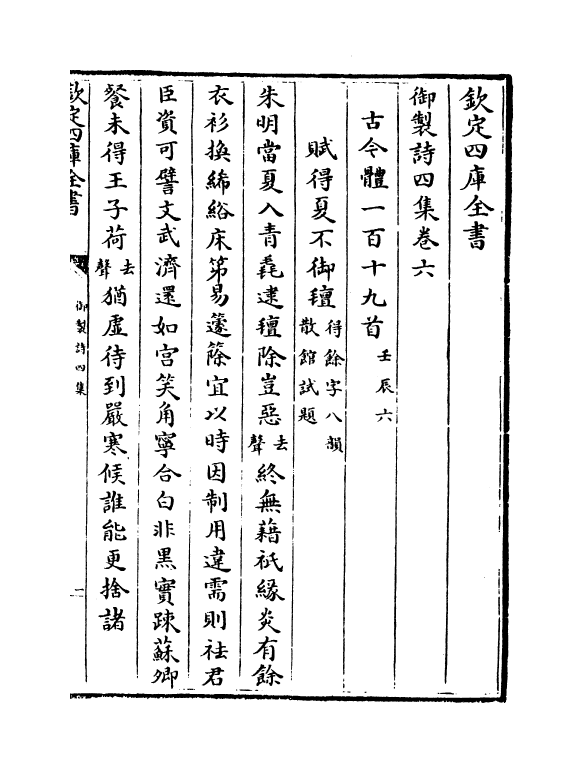 欽定四庫全書
御製詩四集卷六
古今體一百十九首壬辰六
賦得夏不御氊得餘字八韻散館試題
朱明當夏入青毳逮氊除豈惡去聲終無藉祇縁炎有餘
衣衫換絺綌床笫易籧篨宜以時因制用違需則袪君
臣資可譬文武濟還如宫笑角寧合白非黒實踈蘇卿
餐未得王子荷去聲猶虛待到嚴寒候誰能更捨諸
欽定四庫全書
御製詩四集
一